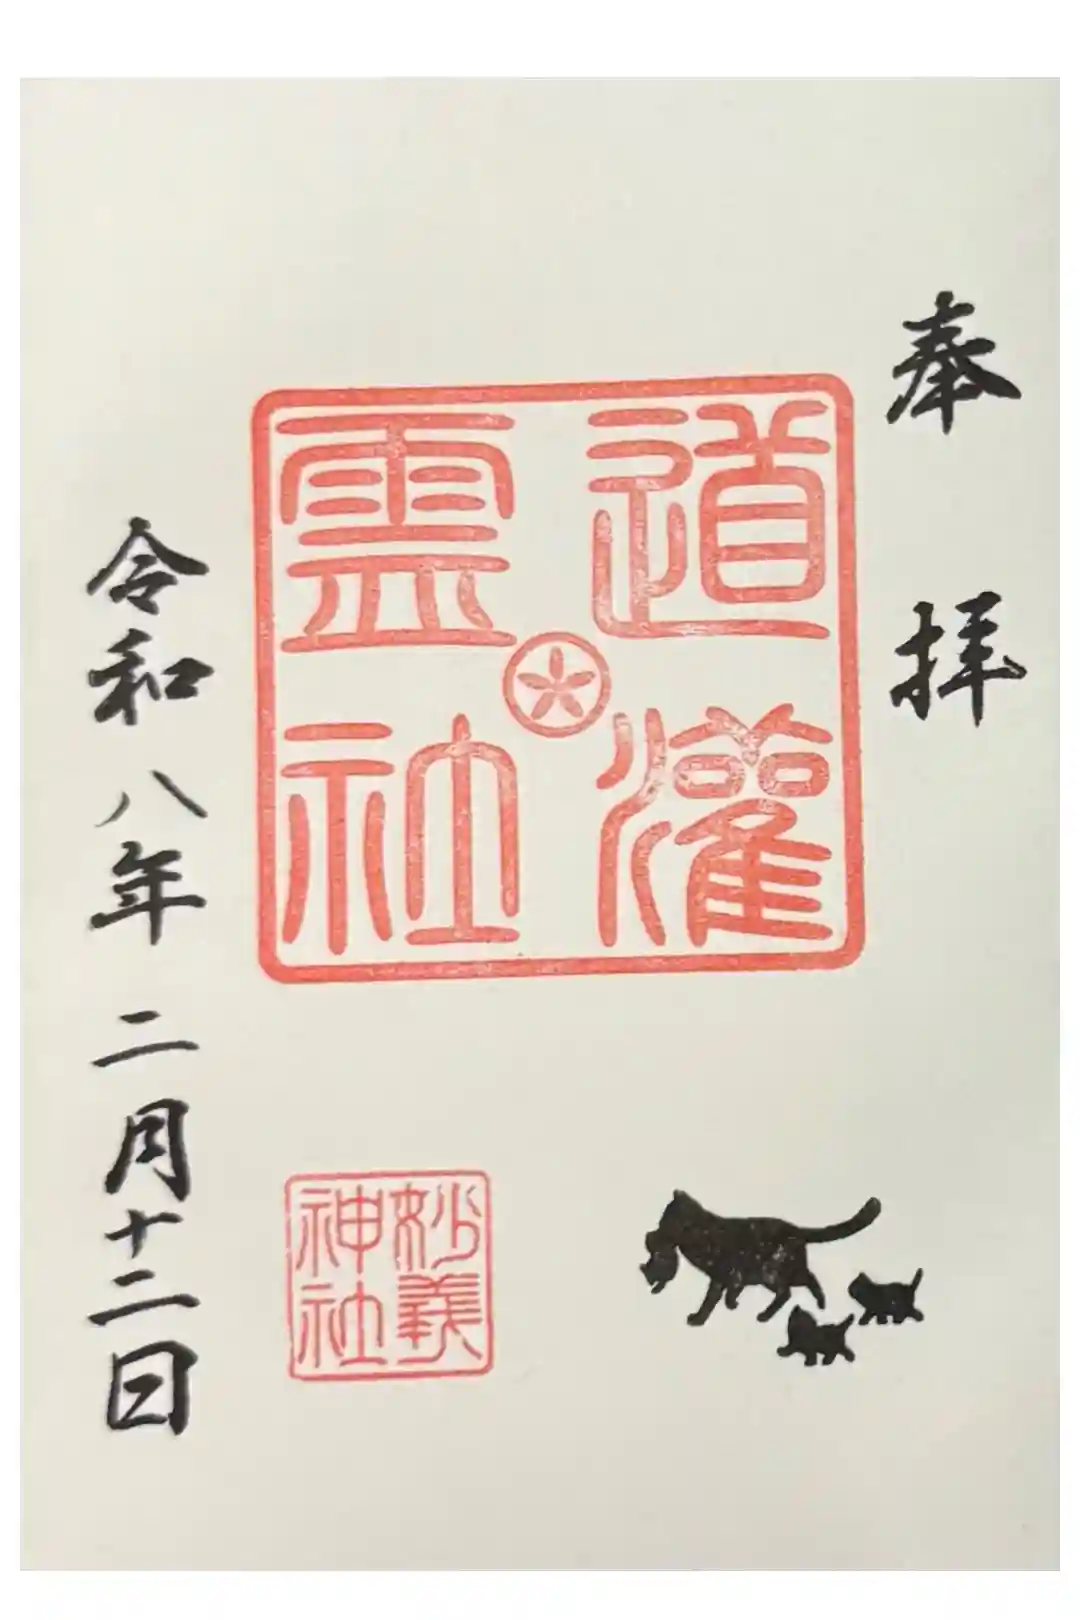 奉拝
道灌
霊社
妙義
神社
令和八年二月十二日